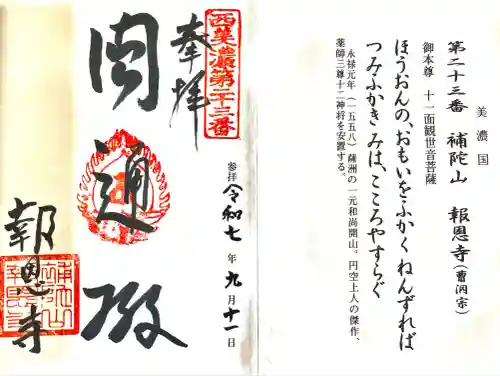 美濃国
第二十三番 補陀山 報恩寺(曹洞宗)
御本尊 十一面観世音菩薩
ほうおんの、おもいをふかくねんずれば
つみふかきみは、こころやすらぐ
永禄元年(一五五八)薩洲の一元和尚開山。円空上人の傑作、
薬師三尊十二神将を安置する。
西美濃第二十三番
奉拝
圓通殿
参拝 令和七年九月十一日
報恩寺
補陀山